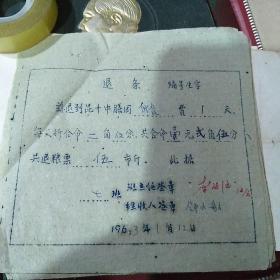 退条
兹退到昆十中膳团伙食费1天
每天折合金二角伍分，共合金壹元贰角伍分
共退粮票伍市斤。此据
七班班主任签章
经收人签章
1963年1月12日